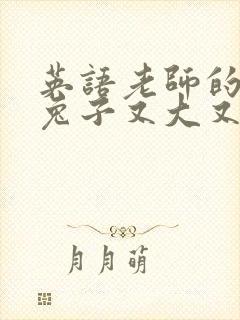 英語老師的
兔子又大又
月月萌